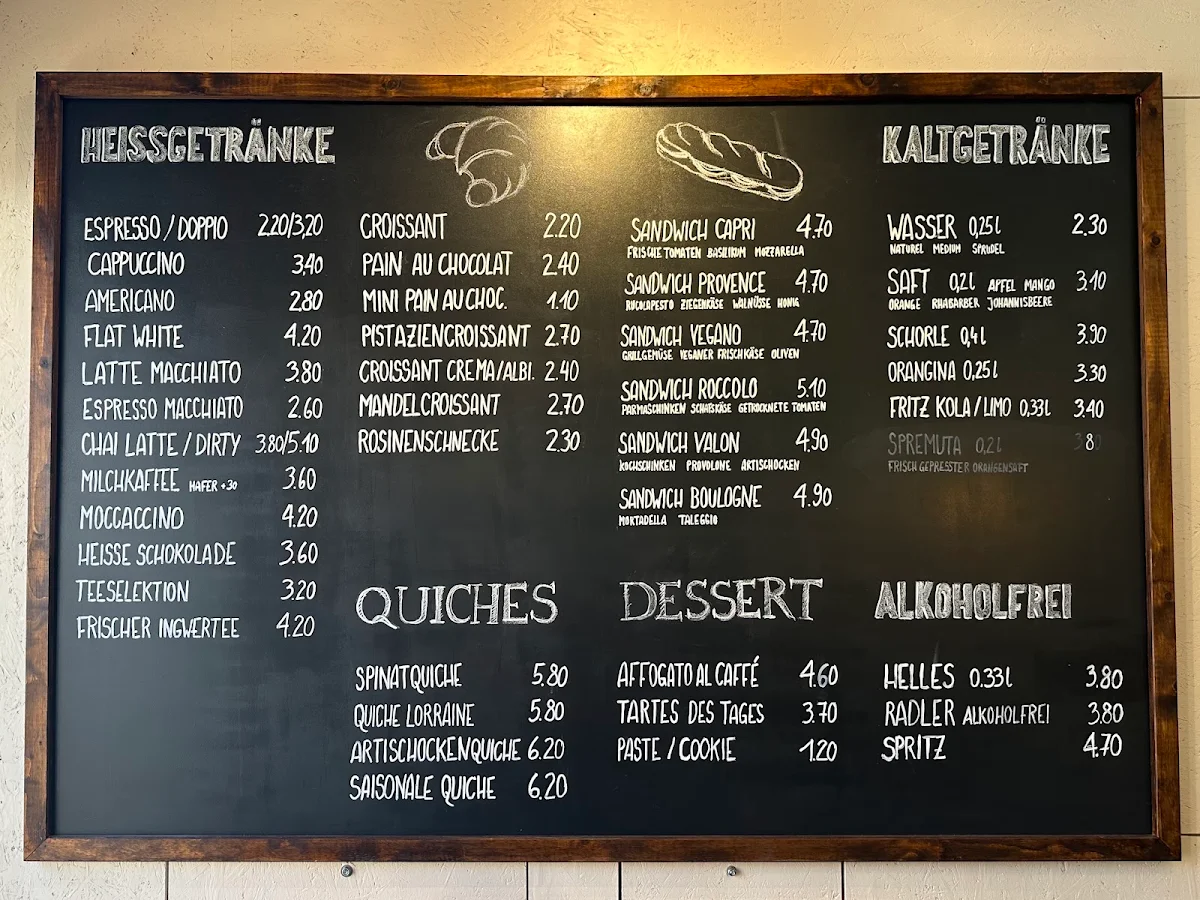 HEISSGETRÄNKE
ESPRESSO / DOPPIO 2.20/3,20
CAPPUCCINO 3.40
AMERICANO 2.80
FLAT WHITE 4.20
LATTE MACCHIATO 3.80
ESPRESSO MACCHIATO 2.60
CHAI LATTE / DIRTY 3.80/5.10
MILCHKAFFEE HAFER +30 3.60
MOCCACCINO 4.20
HEISSE SCHOKOLADE 3.60
TEESELEKTION 3.20
FRISCHER INGWERTEE 4.20
CROISSANT 2.20
PAIN AU CHOCOLAT 2.40
MINI PAIN AU CHOC. 1.10
PISTAZIENCROISSANT 2.70
CROISSANT CREMA/ALBI. 2.40
MANDELCROISSANT 2.70
ROSINENSCHNECKE 2.30
QUICHES
SPINATQUICHE 5.80
QUICHE LORRAINE 5.80
ARTISCHOCKENQUICHE 6.20
SAISONALE QUICHE 6.20
SANDWICH CAPRI 4.70
FRISCHE TOMATEN BASILIKUM MOZZARELLA
SANDWICH PROVENCE 4.70
RUCOLAPESTO ZIEGENKÄSE WALNÜSSE HONIG
SANDWICH VEGANO 4.70
GRILLGEMÜSE VEGANER FRISCHKÄSE OLIVEN
SANDWICH ROCCOLO 5.10
PARMASCHINKEN SCHAFSKÄSE GETROCKNETE TOMATEN
SANDWICH VALON 4.90
KOCHSCHINKEN PROVOLONE ARTISCHOCKEN
SANDWICH BOULOGNE 4.90
MORTADELLA TALEGGIO
DESSERT
AFFOGATO AL CAFFÉ 4.60
TARTES DES TAGES 3.70
PASTE / COOKIE 1.20
KALTGETRÄNKE
WASSER 0,25l 2.30
NATUREL MEDIUM SPRUDEL
SAFT 0,2l APFEL MANGO 3.10
ORANGE RHABARBER JOHANNISBEERE
SCHORLE 0,4l 3.90
ORANGINA 0,25l 3.30
FRITZ KOLA / LIMO 0,33l 3.40
SPREMUTA 0,2l 3.80
FRISCH GEPRESSTER ORANGENSAFT
ALKOHOLFREI
HELLES 0.33l 3.80
RADLER ALKOHOLFREI 3.80
SPRITZ 4.70